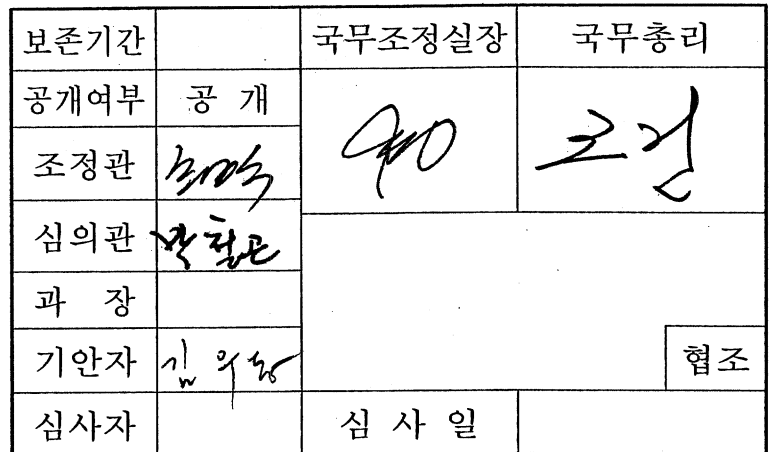 보존기간 국무조정실장 국무총리
공개여부 공 개
조정관
심의관 박철곤
과 장
기안자 김
협조
심사자 심 사 일